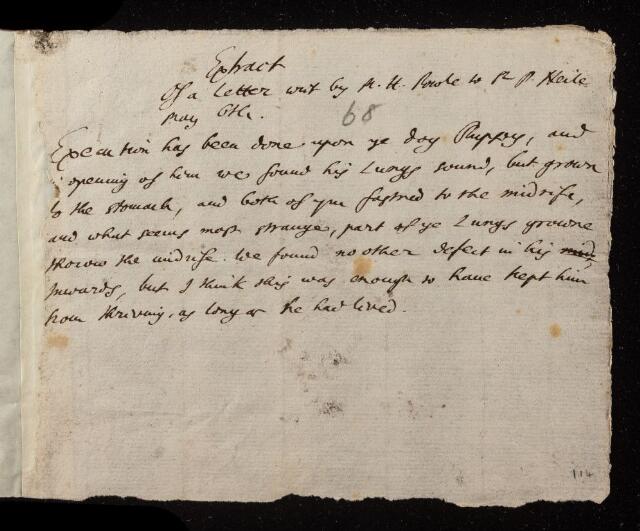 Extract
Of a Letter writ by H. H. Powle to R P. Neile
May 6th.
68
Execution has been done upon ye dog Puppey, and
opening of him we found his Lungs sound, but grown
to the stomach, and both of ym fastned to the midrife,
and what seems most strange, part of ye Lungs growne
thorow the midrife. We found no other defect in his mid
Inwards, but I think this was enough to have kept him
from thriving, as long as he had lived.
114